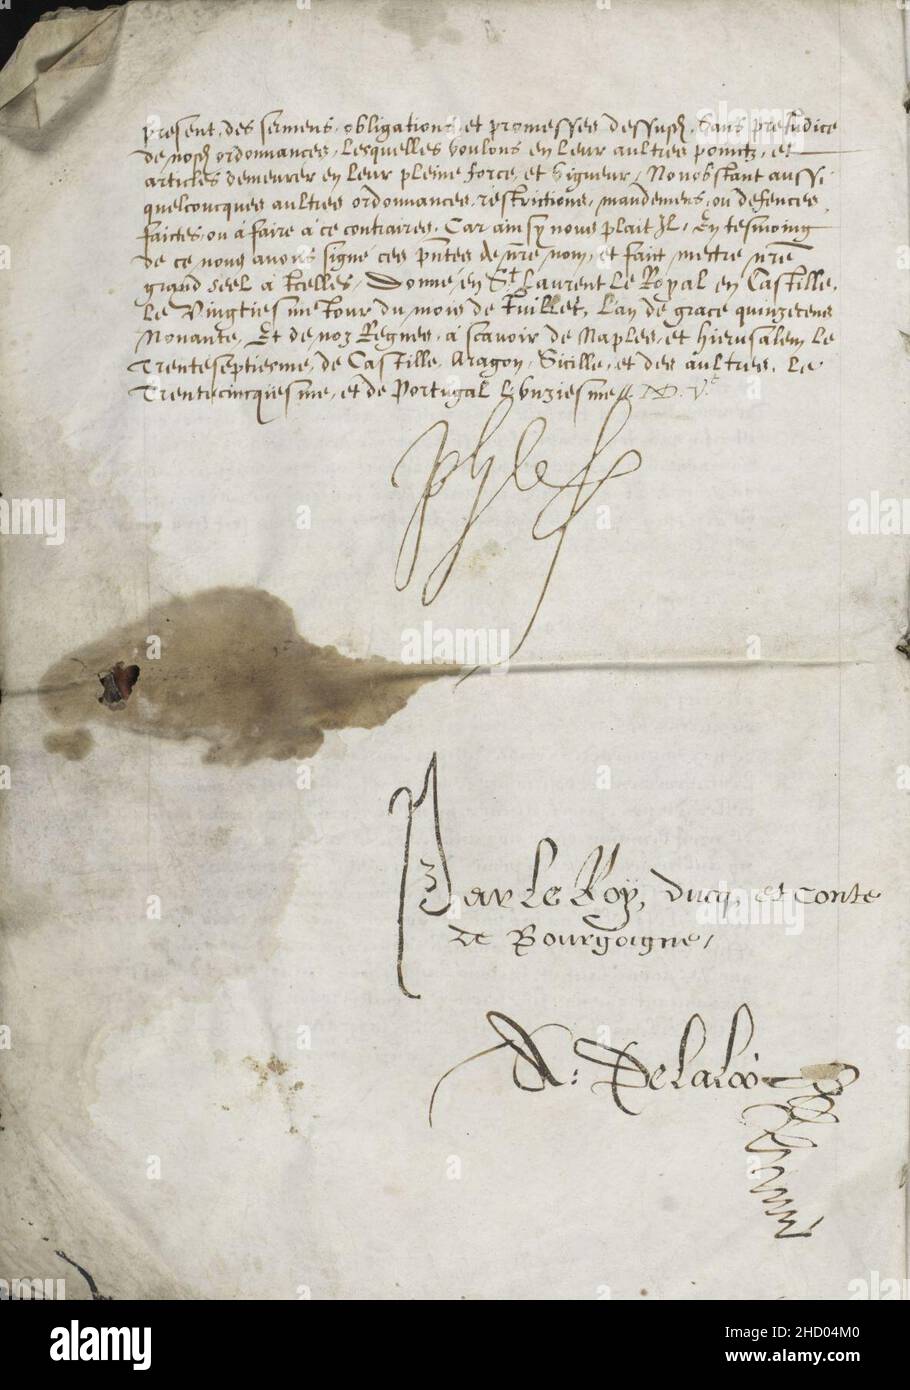 present, des sermens, obligations, et promesses dessusd. Sans preiudice
de nosd ordonnances, lesquelles voulons en leur aultres poinctz, et
articles demeurer en leur pleine force, et vigueur, Nonobstant aussi
quelconcques aultres ordonnances, restrictions, mandemens, ou defences,
faictes, ou à faire à ce contraires, Car ainsy nous plait Il, En tesmoing
de ce nous avons signé ces pntes de nre nom, et fait mettre nre
grand seel à Icelles, Donné en St. Laurent le Royal en Castille,
le Vingtiesme Iour du mois de Iuillet, L'an de grace quinzecens
Nonante, Et de noz Regnes, à scavoir de Naples, et Hierusalem le
Trenteseptiesme, de Castille, Aragon, Sicille, et des aultres, le
Trentecincqiesme, et de Portugal l'unziesme
Par le Roy, Ducq, et Conte
de Bourgoigne,
A: De Laloo
alamy
alamy
alamy
alamy
Image ID: 2HD04M0
www.alamy.com